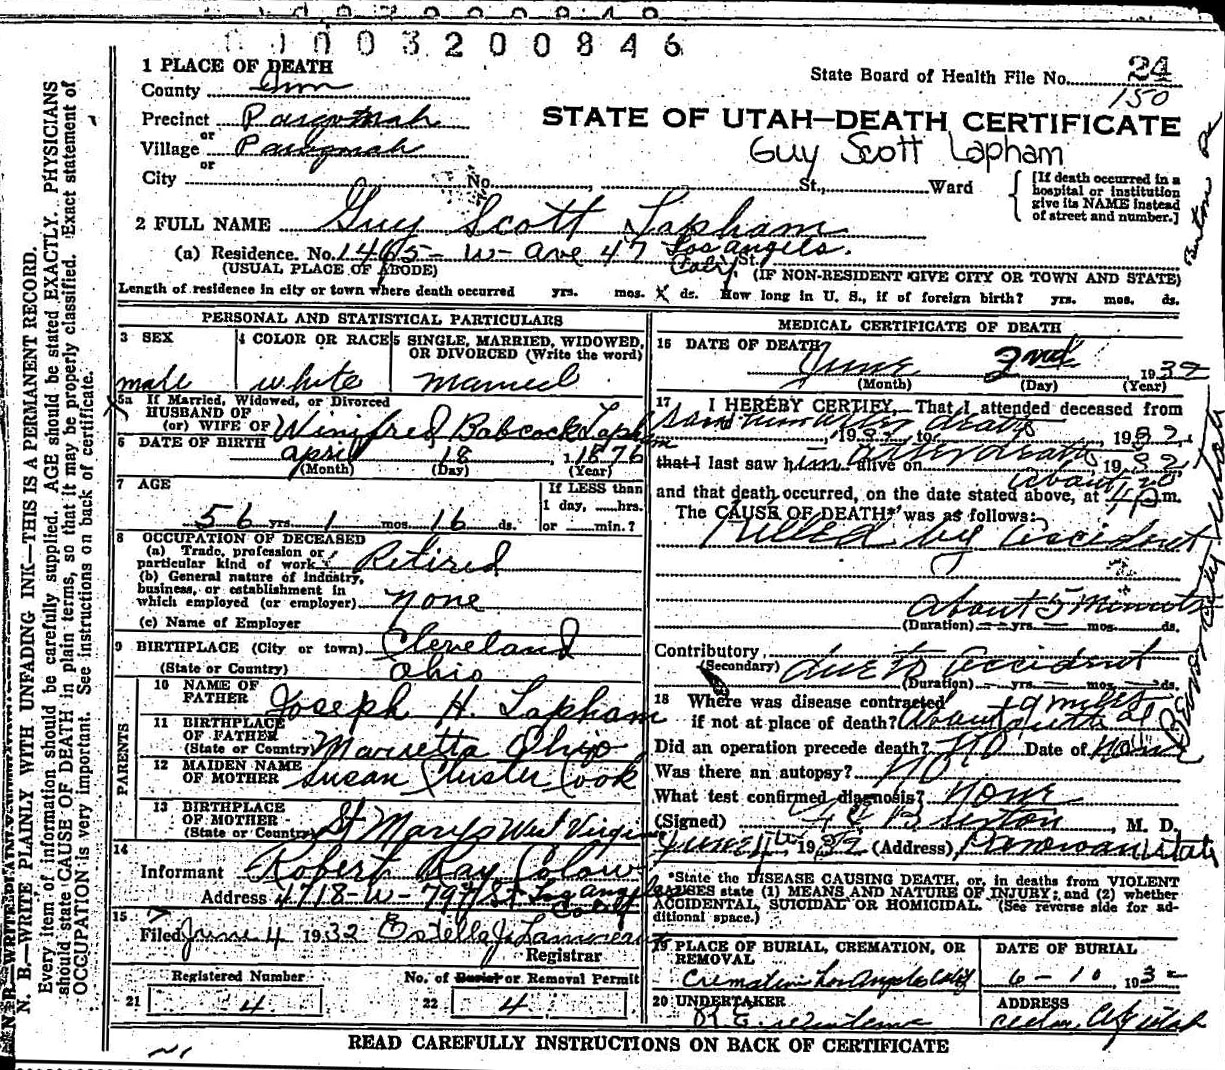 01003200846
1 PLACE OF DEATH
County Iron
State Board of Health File No. 24
150
Precinct Paragonah
or
Village Paragonah
or
City No. , St., Ward
STATE OF UTAH—DEATH CERTIFICATE
Guy Scott Lapham
[If death occurred in a
hospital or institution
give its NAME instead
of street and number.]
2 FULL NAME Guy Scott Lapham
(a) Residence. No. 1465- W- Ave 47 Los Angels. St.
Calif
(USUAL PLACE OF ABODE) (IF NON-RESIDENT GIVE CITY OR TOWN AND STATE)
Length of residence in city or town where death occurred yrs. mos. X ds. How long in U. S., if of foreign birth? yrs. mos. ds.
PERSONAL AND STATISTICAL PARTICULARS
3 SEX 4 COLOR OR RACE 5 SINGLE, MARRIED, WIDOWED,
OR DIVORCED (Write the word)
male white married
5a If Married, Widowed, or Divorced
HUSBAND OF
(or) WIFE OF Winifred Babcock Lapham
6 DATE OF BIRTH April 18 1876
(Month) (Day) (Year)
7 AGE If LESS than
1 day, hrs.
56 yrs. 1 mos. 16 ds. or min.?
8 OCCUPATION OF DECEASED
(a) Trade, profession or
particular kind of work Retired
(b) General nature of industry,
business, or establishment in
which employed (or employer) none
(c) Name of Employer
9 BIRTHPLACE (City or town) Cleveland
(State or Country) Ohio
PARENTS
10 NAME OF
FATHER Joseph H. Lapham
11 BIRTHPLACE
OF FATHER
(State or Country) Marietta Ohio
12 MAIDEN NAME
OF MOTHER Susan Cook
13 BIRTHPLACE
OF MOTHER
(State or Country) St Marys West Virginia
14
Informant Robert Ray
Address 1718-W-79th St Los Angeles
Calif
15
Filed June 4 1932 Estella J.
Registrar
Registered Number No. of Burial or Removal Permit
21 4 22 4
MEDICAL CERTIFICATE OF DEATH
16 DATE OF DEATH
June 2nd 1932
(Month) (Day) (Year)
17 I HEREBY CERTIFY, That I attended deceased from
death , 1932, to , 1932,
that I last saw him alive on after death , 1932
about
and that death occurred, on the date stated above, at 4 p m.
The CAUSE OF DEATH* was as follows:
Killed by accident
about 5 minutes
(Duration) yrs. mos. ds.
Contributory
(Secondary) due to accident
(Duration) yrs. mos. ds.
18 Where was disease contracted
if not at place of death? About
Did an operation precede death? no Date of none
Was there an autopsy? no
What test confirmed diagnosis? none
(Signed) Burton , M. D.
June 4th 1932 (Address) Parowan Utah
*State the DISEASE CAUSING DEATH, or, in deaths from VIOLENT
CAUSES state (1) MEANS AND NATURE OF INJURY; and (2) whether
ACCIDENTAL, SUICIDAL OR HOMICIDAL. (See reverse side for ad-
ditional space.)
19 PLACE OF BURIAL, CREMATION, OR
REMOVAL DATE OF BURIAL
Cremation Los Angeles Calif 6-10 1932
20 UNDERTAKER ADDRESS
Cedar City Utah
READ CAREFULLY INSTRUCTIONS ON BACK OF CERTIFICATE
N. B.—WRITE PLAINLY WITH UNFADING INK—THIS IS A PERMANENT RECORD.
Every item of information should be carefully supplied. AGE should be stated EXACTLY. PHYSICIANS
should state CAUSE OF DEATH in plain terms, so that it may be properly classified. Exact statement of
OCCUPATION is very important. See instructions on back of certificate.